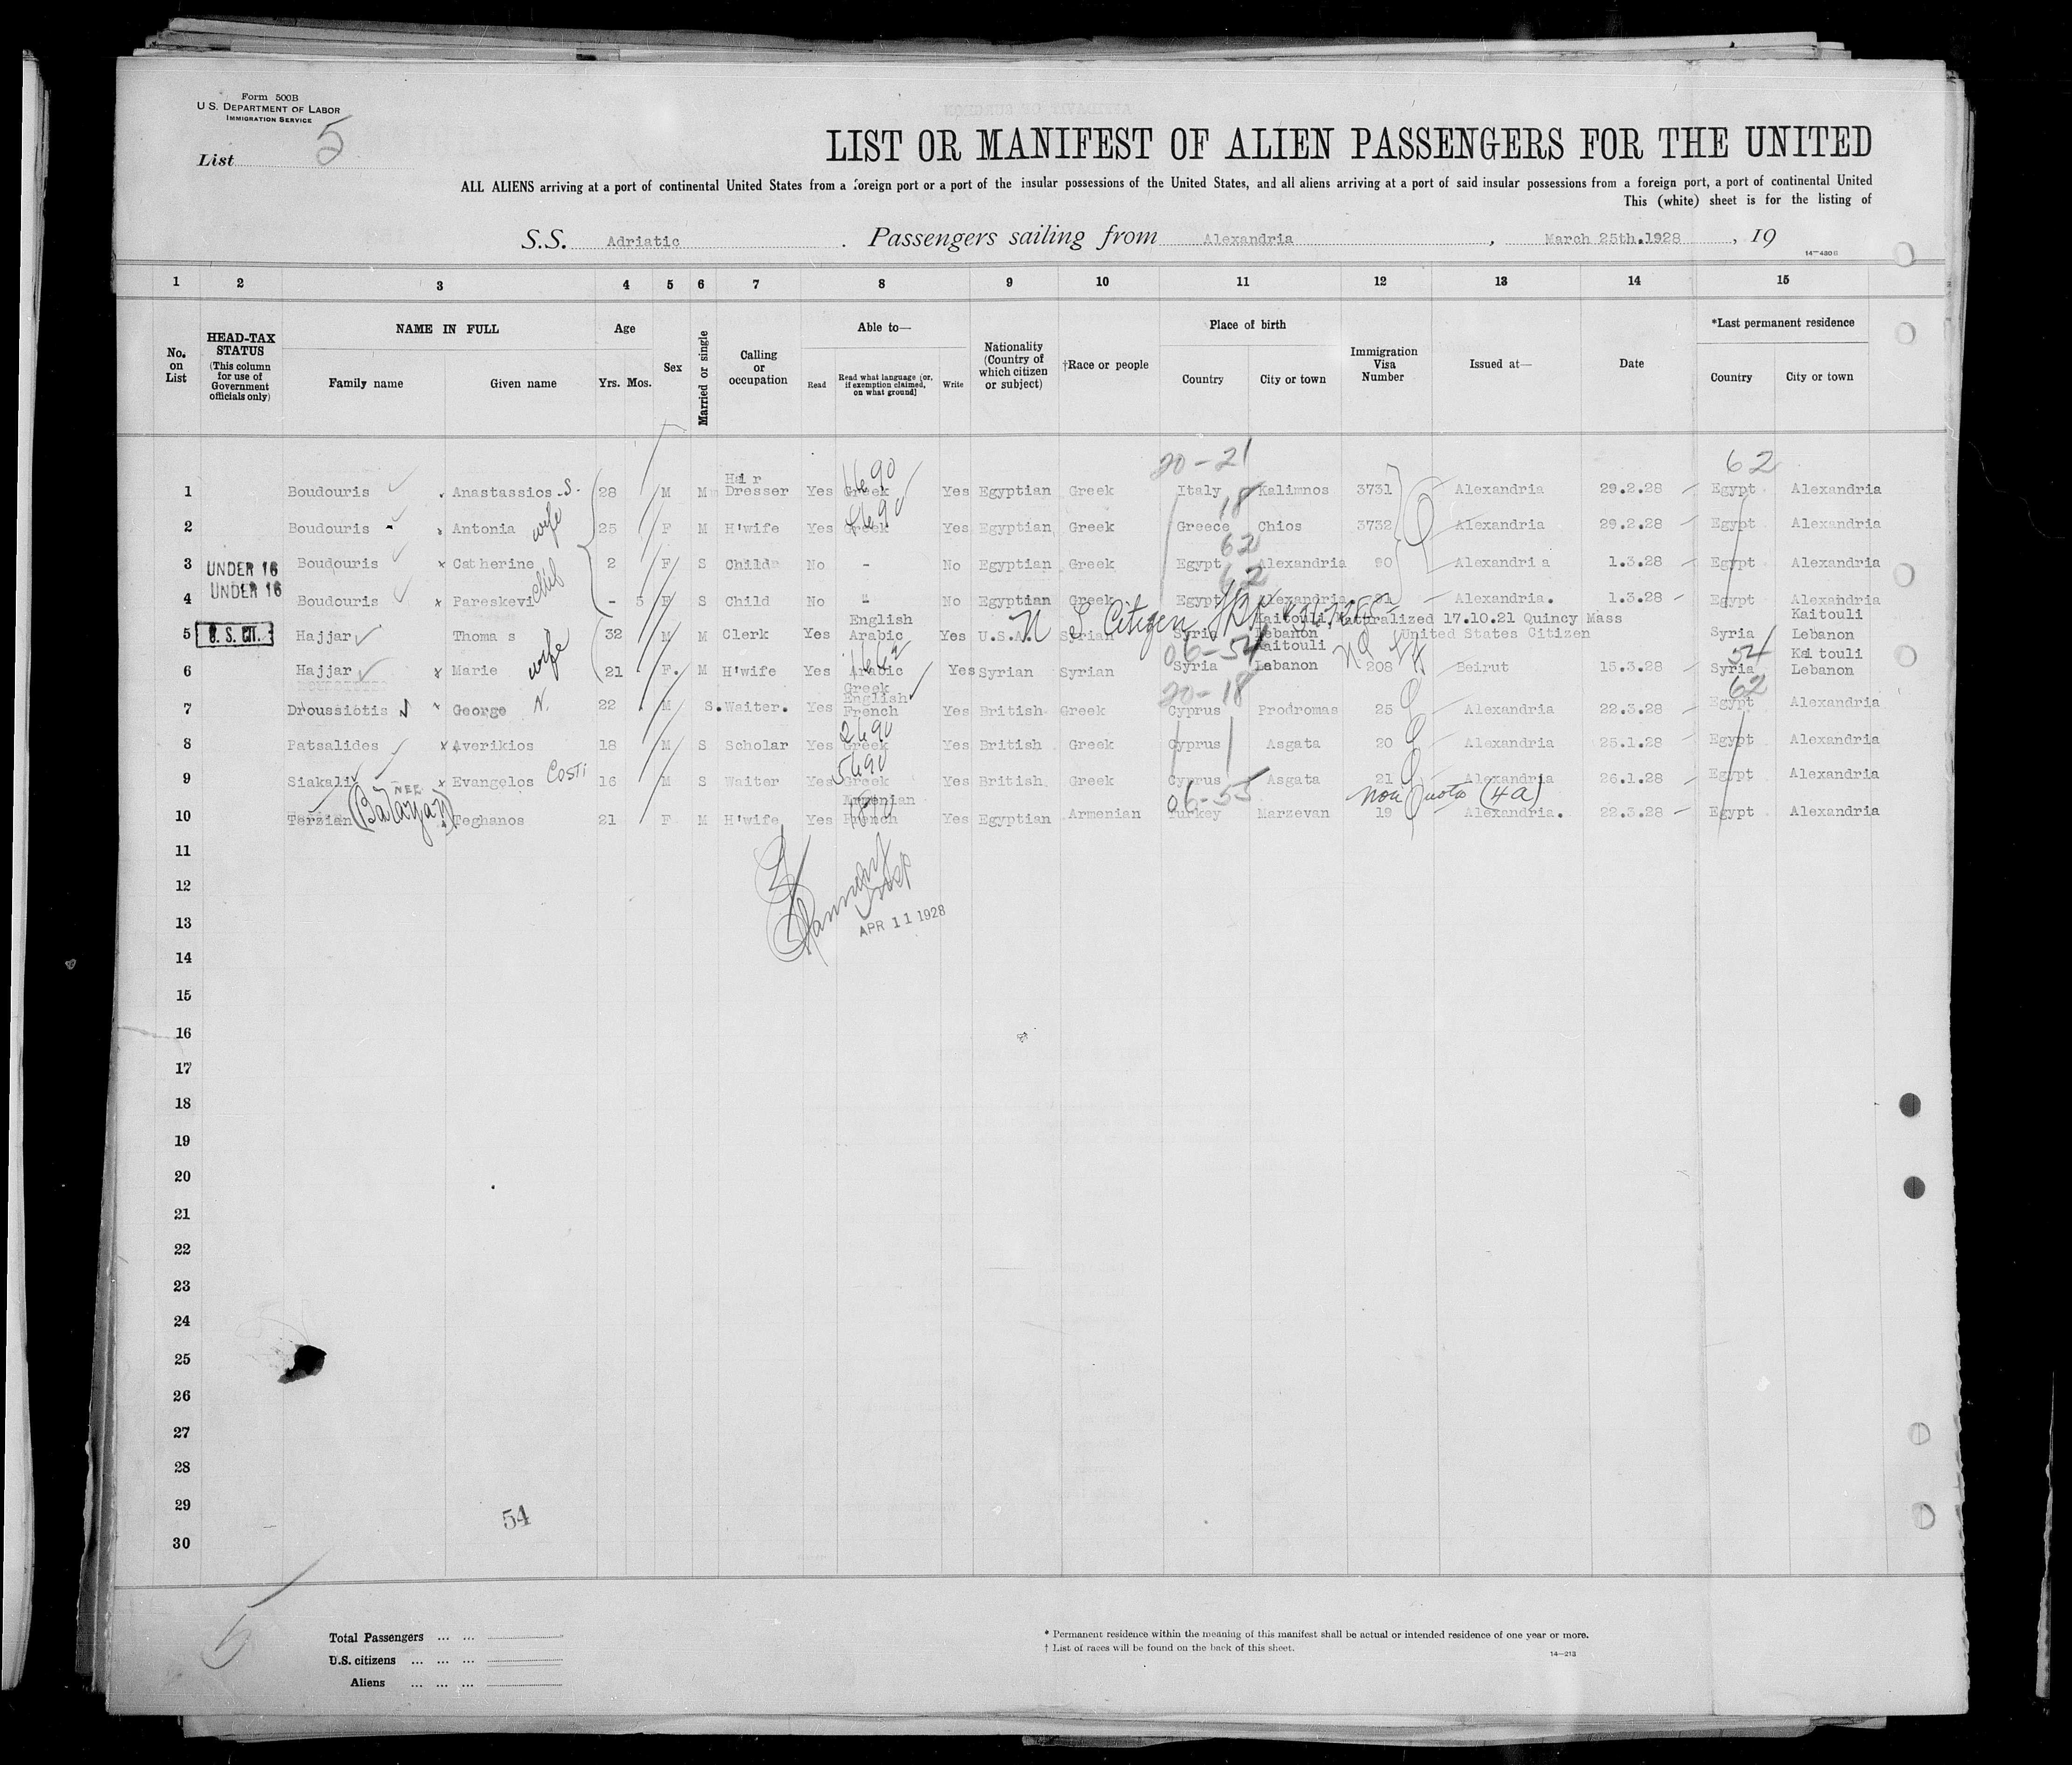 Form 500B
U. S. DEPARTMENT OF LABOR
IMMIGRATION SERVICE
List 5
LIST OR MANIFEST OF ALIEN PASSENGERS FOR THE UNITED
ALL ALIENS arriving at a port of continental United States from a foreign port or a port of the insular possessions of the United States, and all aliens arriving at a port of said insular possessions from a foreign port, a port of continental United
This (white) sheet is for the listing of
S.S. Adriatic . Passengers sailing from Alexandria , March 25th.1928 , 19
14—480 B
1 2 3 4 5 6 7 8 9 10 11 12 13 14 15
No. on List
HEAD-TAX STATUS (This column for use of Government officials only)
NAME IN FULL Family name Given name
Age Yrs. Mos.
Sex
Married or single
Calling or occupation
Able to— Read Read what language (or, if exemption claimed, on what ground) Write
Nationality (Country of which citizen or subject)
†Race or people
Place of birth Country City or town
Immigration Visa Number
Issued at—
Date
*Last permanent residence Country City or town
20-21 62
1 Boudouris Anastassios S. 28 M M Hair Dresser Yes Greek Yes Egyptian Greek Italy Kalimnos 3731 Alexandria 29.2.28 Egypt Alexandria
18
2 Boudouris Antonia wife 25 F M H'wife Yes Greek Yes Egyptian Greek Greece Chios 3732 Alexandria 29.2.28 Egypt Alexandria
62
3 UNDER 16 Boudouris Catherine 2 F S Child No - No Egyptian Greek Egypt Alexandria 90 Alexandria 1.3.28 Egypt Alexandria
62
4 UNDER 16 Boudouris Pareskevi child - 5 F S Child No " No Egyptian Greek Egypt Alexandria 91 Alexandria. 1.3.28 Egypt Alexandria
English Kaitouli Naturalized 17.10.21 Quincy Mass Kaitouli
5 U. S. CIT. Hajjar Thomas 32 M M Clerk Yes Arabic Yes U.S.A. Syrian Syria Lebanon United States Citizen Syria Lebanon
U S Citizen
06-54 Kaitouli 54 Kaitouli
6 Hajjar Marie wife 21 F. M H'wife Yes Arabic Yes Syrian Syrian Syria Lebanon 208 Beirut 15.3.28 Syria Lebanon
Greek English 20-18 62
7 Droussiotis George N. 22 M S. Waiter. Yes French Yes British Greek Cyprus Prodromas 25 Alexandria 22.3.28 Egypt Alexandria
8 Patsalides Averikios 18 M S Scholar Yes Greek Yes British Greek Cyprus Asgata 20 Alexandria 25.1.28 Egypt Alexandria
9 Siakali Evangelos Costi 16 M S Waiter Yes Greek Yes British Greek Cyprus Asgata 21 Alexandria 26.1.28 Egypt Alexandria
NEE Armenian 06-55 Non Quota (4a)
10 Terzian (Balayan) Teghanos 21 F M H'wife Yes French Yes Egyptian Armenian Turkey Marzevan 19 Alexandria. 22.3.28 Egypt Alexandria
11
12
13
APR 11 1928
14
15
16
17
18
19
20
21
22
23
24
25
26
27
28
29
54
30
5
Total Passengers ... ...
U.S. citizens ... ... ...
Aliens ... ... ...
* Permanent residence within the meaning of this manifest shall be actual or intended residence of one year or more.
† List of races will be found on the back of this sheet.
14—213